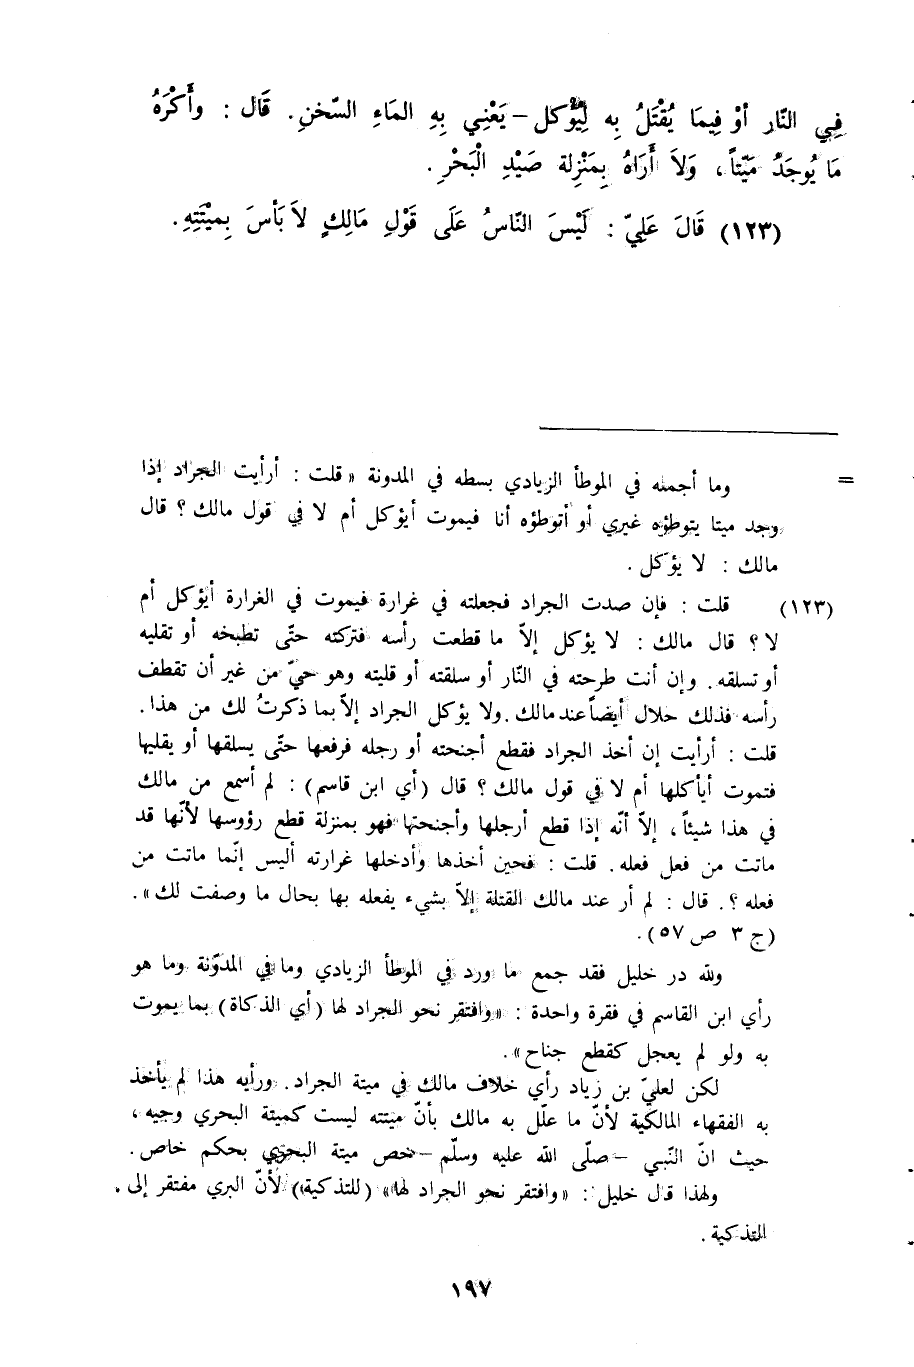 فِي النّار أوْ فِيمَا يُقْتَلُ بِه لِيُؤْكل – يَعْنِي بِهِ المَاءِ السّخنِ. قَال : وأَكْرَهُ
مَا يُوجَدُ مَيّتاً، وَلاَ أَرَاهُ بِمَنْزِلة صَيْدِ الْبَحْرِ.
(١٢٣) قَالَ عَلِيّ : لَيْسَ النّاسُ عَلَى قَوْلِ مَالِكٍ لاَ بَأسَ بِمِيْتَتِهِ.
= وما أجمله في الموطأ الزيادي بسطه في المدونة « قلت : أرأيت الجراد إذا
وجد ميتا يتوطؤه غيري أو أتوطؤه أنا فيموت أيؤكل أم لا في قول مالك ؟ قال
مالك : لا يؤكل.
(١٢٣) قلت : فإن صدت الجراد فجعلته في غرارة فيموت في الغرارة أيؤكل أم
لا ؟ قال مالك : لا يؤكل إلاّ ما قطعت رأسه فتركته حتّى تطبخه أو تقليه
أو تسلقه. وإن أنت طرحته في النّار أو سلقته أو قليته وهو حيّ من غير أن تقطف
رأسه فذلك حلال أيضاً عند مالك. ولا يؤكل الجراد إلاّ بما ذكرتُ لك من هذا.
قلت : أرأيت إن أخذ الجراد فقطع أجنحته أو رجله فرفعها حتّى يسلقها أو يقليها
فتموت أيأكلها أم لا في قول مالك ؟ قال (أي ابن قاسم) : لم أسمع من مالك
في هذا شيئاً، إلاّ أنّه إذا قطع أرجلها وأجنحتها فهو بمنزلة قطع رؤوسها لأنّها قد
ماتت من فعل فعله. قلت : فحين أخذها وأدخلها غرارته أليس إنّما ماتت من
فعله ؟. قال : لم أر عند مالك القتلة إلاّ بشيء يفعله بها بحال ما وصفت لك».
(ج ٣ ص ٥٧).
ولله در خليل فقد جمع ما ورد في الموطأ الزيادي وما في المدوّنة وما هو
رأي ابن القاسم في فقرة واحدة : «وافتقر نحو الجراد لها (أي الذكاة) بما يموت
به ولو لم يعجل كقطع جناح».
لكن لعليّ بن زياد رأي خلاف مالك في ميتة الجراد. ورأيه هذا لم يأخذ
به الفقهاء المالكية لأنّ ما علّل به مالك بأنّ ميتته ليست كميتة البحري وجيه،
حيث انّ النّبي – صلّى الله عليه وسلّم – خص ميتة البحري بحكم خاص.
ولهذا قال خليل : «وافتقر نحو الجراد لها» (للتذكية) لأنّ البري مفتقر إلى
التذكية.
١٩٧